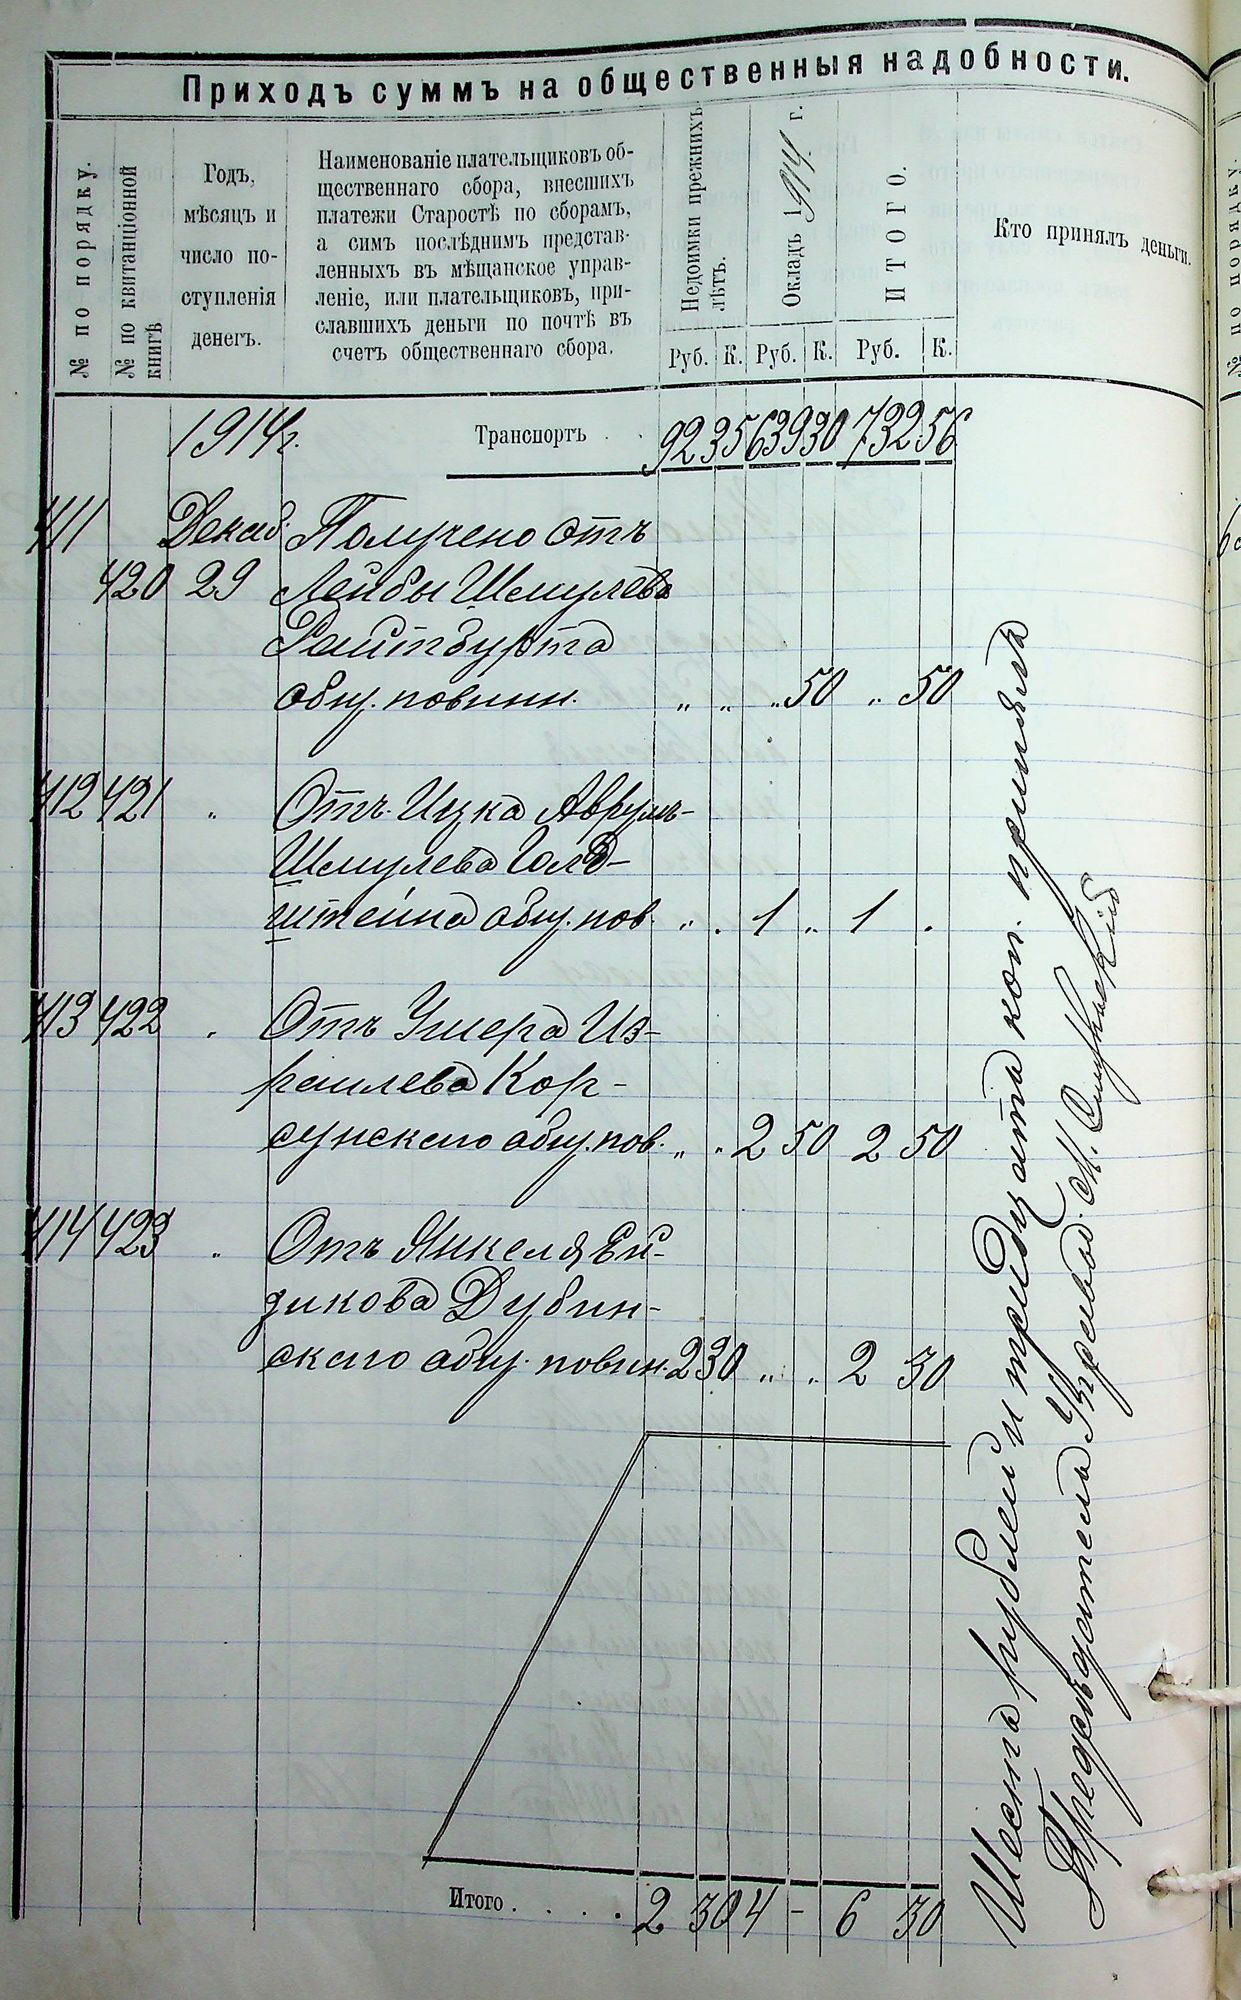 Приходъ суммъ на общественныя надобности.
№ по порядку.
№ по квитанціонной
книгѣ
Годъ,
мѣсяцъ и
число по-
ступленія
денегъ.
Наименованіе плательщиковъ об-
щественнаго сбора, внесшихъ
платежи Старостѣ по сборамъ,
а симъ послѣднимъ представ-
ленныхъ въ мѣщанское управ-
леніе, или плательщиковъ, при-
славшихъ деньги по почтѣ въ
счетъ общественнаго сбора.
Недоимки прежнихъ
лѣтъ.
Окладъ 1914 г.
ИТОГО.
Кто принялъ деньги.
Руб. К. Руб. К. Руб. К.
1914 г. Транспортъ . . 92 35 639 30 732 56
411 Декаб. Получено отъ
420 29 Лейбы Шмулева
Райтбурта
общ. повинн. „ „ „ 50 „ 50
412 421 „ Отъ Ицка Аврумъ-
Шмулева Голд-
штейна общ. пов. „ „ 1 „ 1 „
413 422 „ Отъ Ушера Из-
раилева Кор-
сунскаго общ. пов. „ „ 2 50 2 50
414 423 „ Отъ Янкеля Ей-
зикова Дубин-
скаго общ. повин. 2 30 „ „ 2 30
Итого . . . . 2 30 4 - 6 30
Шесть рублей и тридцать коп. принялъ
Предсѣдатель Управы М.